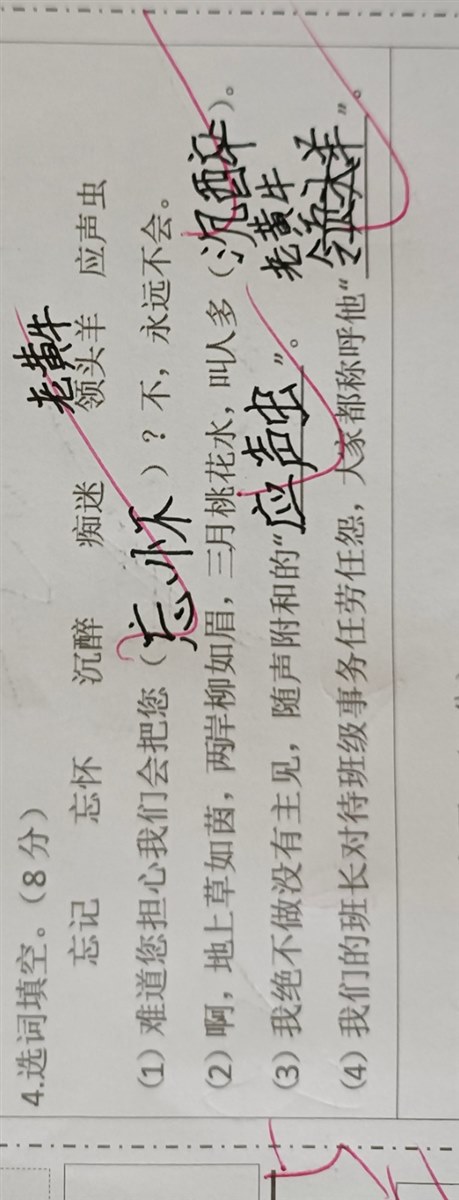 4.选词填空。(8分)
老黄牛
忘记 忘怀 沉醉 痴迷 领头羊 应声虫
(1)难道您担心我们会把您(忘怀)?不,永远不会。
(2)啊,地上草如茵,两岸柳如眉,三月桃花水,叫人多(沉醉)。
(3)我绝不做没有主见,随声附和的“应声虫”。
老黄牛
(4)我们的班长对待班级事务任劳任怨,大家都称呼他“领头羊”。